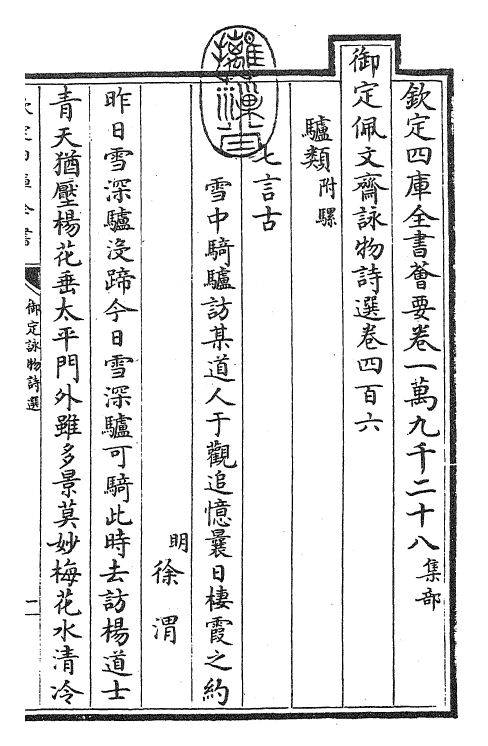 欽定四庫全書薈要卷一萬九千二十八 集部
御定佩文齋詠物詩選卷四百六
驢類 附騾
七言古
雪中騎驢訪某道人于觀追憶曩日棲霞之約
明 徐渭
昨日雪深驢沒蹄今日雪深驢可騎此時去訪楊道士
青天猶壓楊花垂太平門外雖多景莫妙梅花水清冷
御定詠物詩選
一